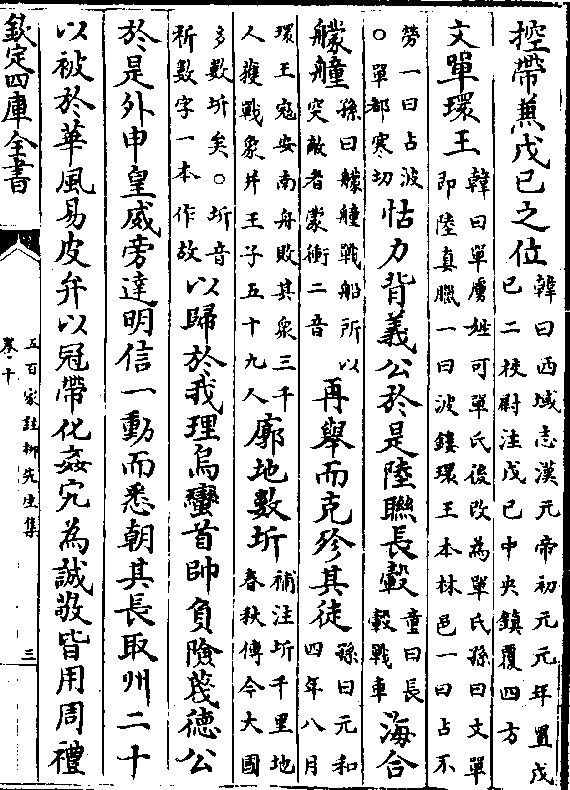 控帶兼戊已之位韓曰西域志漢元帝初元元年置戊已二校尉注戊已中央鎮覆四方
文單環王韓曰單虜姓可單氏後改為單氏孫曰文單即陸真臘一曰波鏤環王本林邑一曰占不
勞一曰占波○單都寒切怙力背義公於是陸聯長轂童曰長轂戰車海合
艨艟孫曰艨艟戰船所以突敵者蒙衝二音再舉而克殄其徒孫曰元和四年八月
環王寇安南舟敗其衆三千人獲戰象并王子五十九人廓地數圻補注圻千里地春秋傳今大國
多數圻矣○圻音祈數字一本作故以歸於我理烏蠻首帥負險蔑德公
於是外申皇威旁達明信一動而悉朝其長取州二十
以被於華風易皮弁以冠帶化姦宄為誠敬皆用周禮
欽定四庫全書
五百家註柳先生集
卷十
三